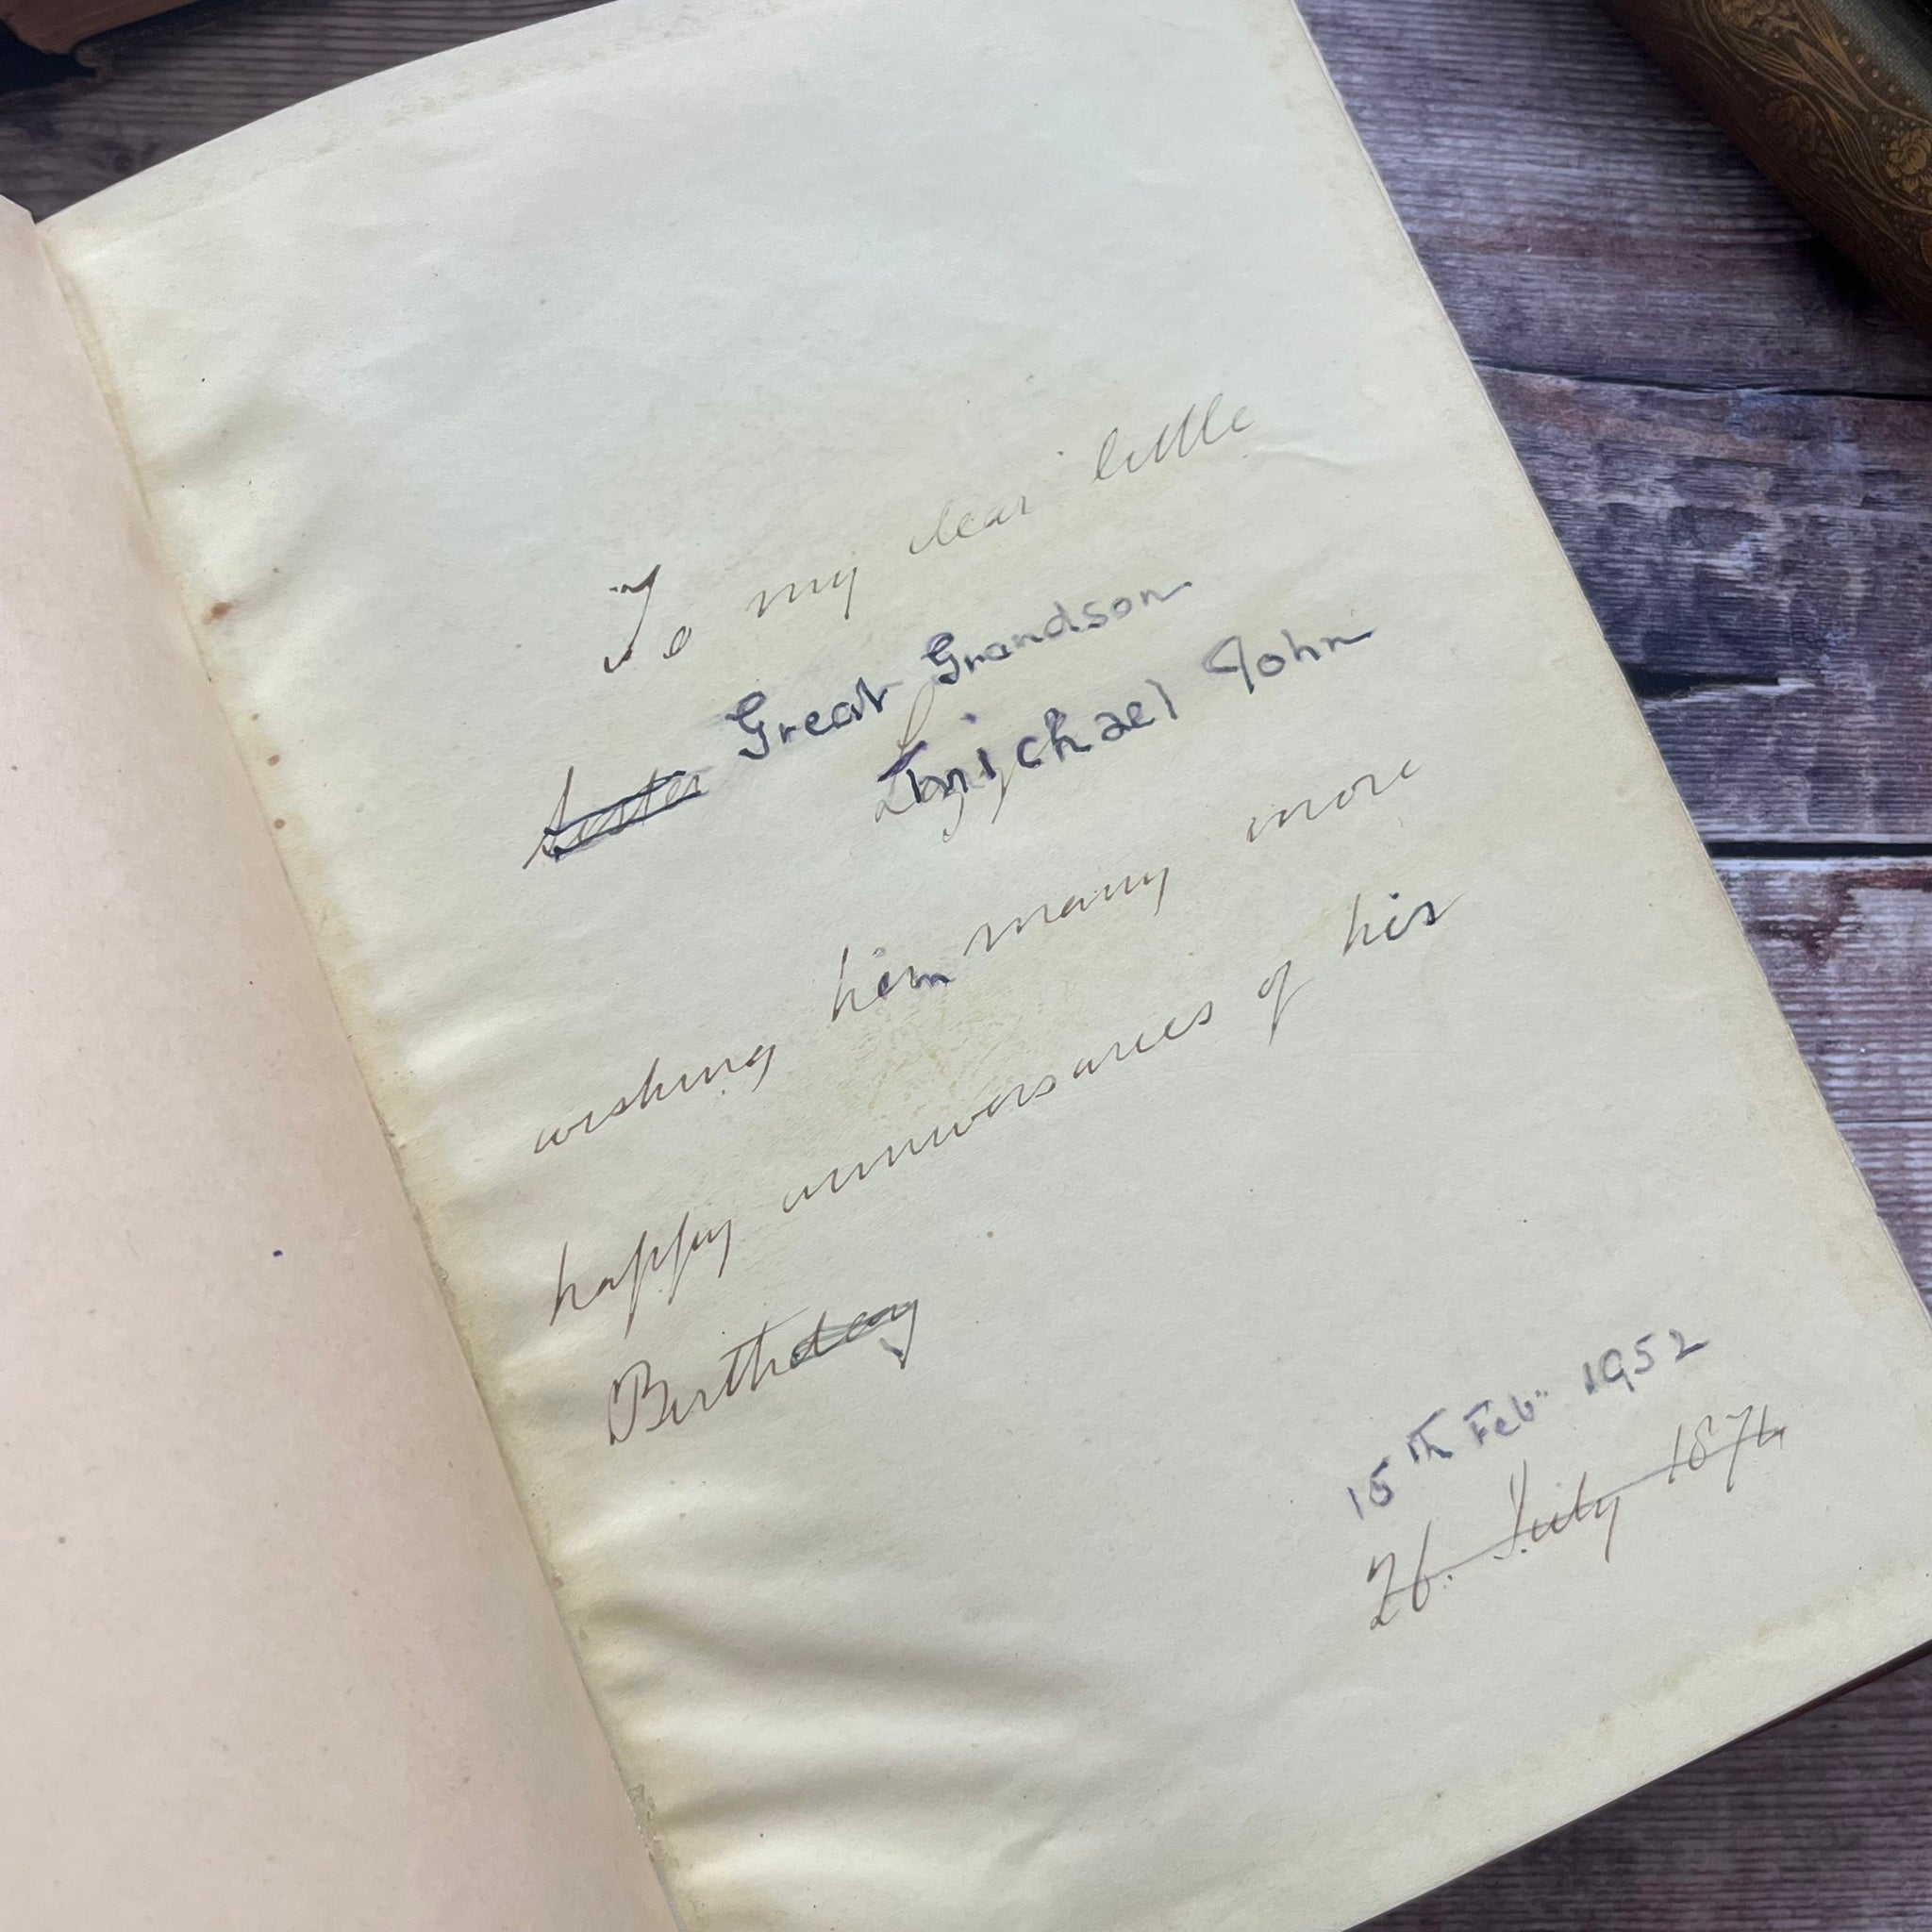 To my dear little
~~Sister~~ Great Grandson
Michael John
wishing him many more
happy anniversaries of his
Birth~~day~~
15th Feb" 1952
~~26. July 1874~~